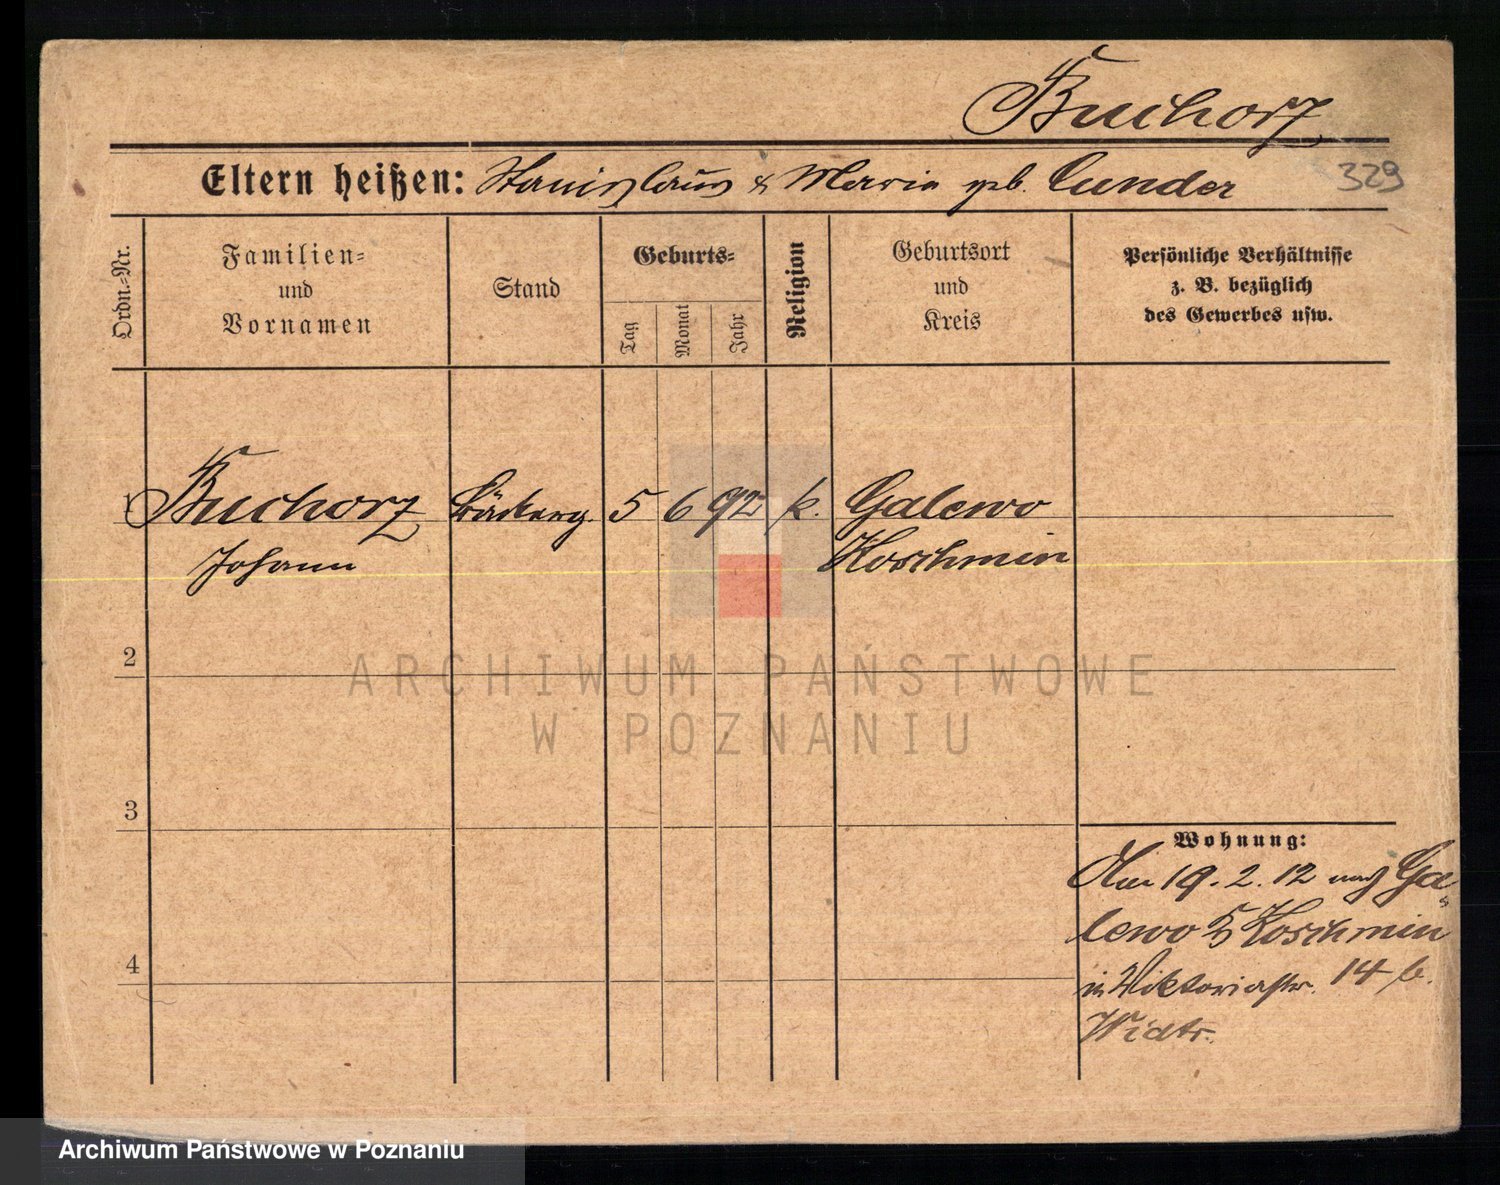 Buchorz
Eltern heißen: Stanislaus & Maria geb. Cunder
329
Ordn.-Nr.
Familien-
und
Vornamen
Stand
Geburts-
Tag
Monat
Jahr
Religion
Geburtsort
und
Kreis
Persönliche Verhältnisse
z. B. bezüglich
des Gewerbes usw.
1 Buchorz Bäckerg. 5 6 92 k. Galewo
Johann Koschmin
2
ARCHIWUM PAŃSTWOWE
W POZNANIU
3
Wohnung:
Am 19. 2. 12 nach Ga-
lewo Koschmin
in Viktoriastr. 14 b.
4
Archiwum Państwowe w Poznaniu